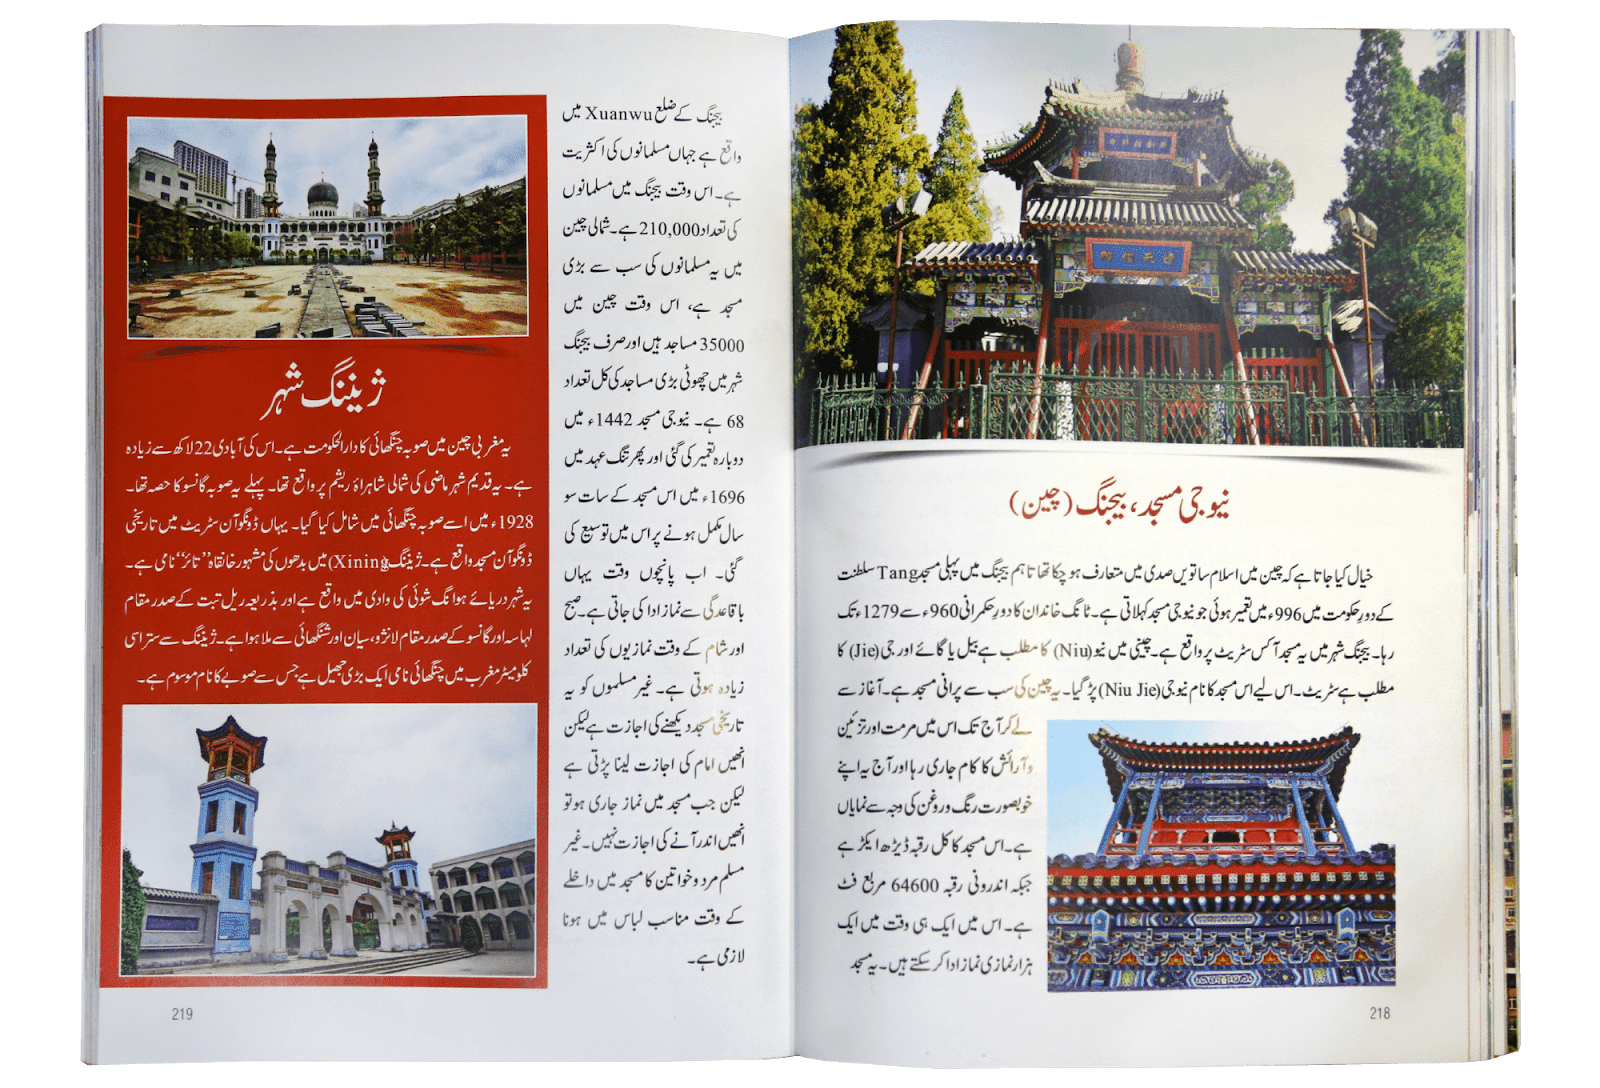 نیو جی مسجد، بیجنگ (چین)
خیال کیا جاتا ہے کہ چین میں اسلام ساتویں صدی میں متعارف ہو چکا تھا تاہم بیجنگ میں پہلی مسجد Tang سلطنت
کے دورِ حکومت میں 996ء میں تعمیر ہوئی جو نیو جی مسجد کہلاتی ہے۔ ٹانگ خاندان کا دورِ حکمرانی 960ء سے 1279ء تک
رہا۔ بیجنگ شہر میں یہ مسجد آکس سٹریٹ پر واقع ہے۔ چینی میں نیو (Niu) کا مطلب ہے بیل یا گائے اور جی (Jie) کا
مطلب ہے سٹریٹ۔ اس لیے اس مسجد کا نام نیو جی (Niu Jie) پڑ گیا۔ یہ چین کی سب سے پرانی مسجد ہے۔ آغاز سے
لے کر آج تک اس میں مرمت اور تزئین
و آرائش کا کام جاری رہا اور آج یہ اپنے
خوبصورت رنگ و روغن کی وجہ سے نمایاں
ہے۔ اس مسجد کا کل رقبہ ڈیڑھ ایکڑ ہے
جبکہ اندرونی رقبہ 64600 مربع فٹ
ہے۔ اس میں ایک ہی وقت میں ایک
ہزار نمازی نماز ادا کر سکتے ہیں۔ یہ مسجد
218
بیجنگ کے ضلع Xuanwu میں
واقع ہے جہاں مسلمانوں کی اکثریت
ہے۔ اس وقت بیجنگ میں مسلمانوں
کی تعداد 210,000 ہے۔ شمالی چین
میں یہ مسلمانوں کی سب سے بڑی
مسجد ہے، اس وقت چین میں
35000 مساجد ہیں اور صرف بیجنگ
شہر میں چھوٹی بڑی مساجد کی کل تعداد
68 ہے۔ نیو جی مسجد 1442ء میں
دوبارہ تعمیر کی گئی اور پھر تنگ عہد میں
1696ء میں اس مسجد کے سات سو
سال مکمل ہونے پر اس میں توسیع کی
گئی۔ اب پانچوں وقت یہاں
باقاعدگی سے نماز ادا کی جاتی ہے۔ صبح
اور شام کے وقت نمازیوں کی تعداد
زیادہ ہوتی ہے۔ غیر مسلموں کو یہ
تاریخی مسجد دیکھنے کی اجازت ہے لیکن
انھیں امام کی اجازت لینا پڑتی ہے
لیکن جب مسجد میں نماز جاری ہو تو
انھیں اندر آنے کی اجازت نہیں۔ غیر
مسلم مرد و خواتین کا مسجد میں داخلے
کے وقت مناسب لباس میں ہونا
لازمی ہے۔
ژیننگ شہر
یہ مغربی چین میں صوبہ چنگھائی کا دارالحکومت ہے۔ اس کی آبادی 22 لاکھ سے زیادہ
ہے۔ یہ قدیم شہر ماضی کی شمالی شاہراۂ ریشم پر واقع تھا۔ پہلے یہ صوبہ گانسو کا حصہ تھا۔
1928ء میں اسے صوبہ چنگھائی میں شامل کیا گیا۔ یہاں ڈونگوآن سٹریٹ میں تاریخی
ڈونگوآن مسجد واقع ہے۔ ژیننگ (Xining) میں بدھوں کی مشہور خانقاہ ”تائر“ نامی ہے۔
یہ شہر دریائے ہوانگ شوئی کی وادی میں واقع ہے اور بذریعہ ریل تبت کے صدر مقام
لہاسہ اور گانسو کے صدر مقام لانژو، سیان اور شنگھائی سے ملا ہوا ہے۔ ژیننگ سے ستر اسی
کلو میٹر مغرب میں چنگھائی نامی ایک بڑی جھیل ہے جس سے صوبے کا نام موسوم ہے۔
219